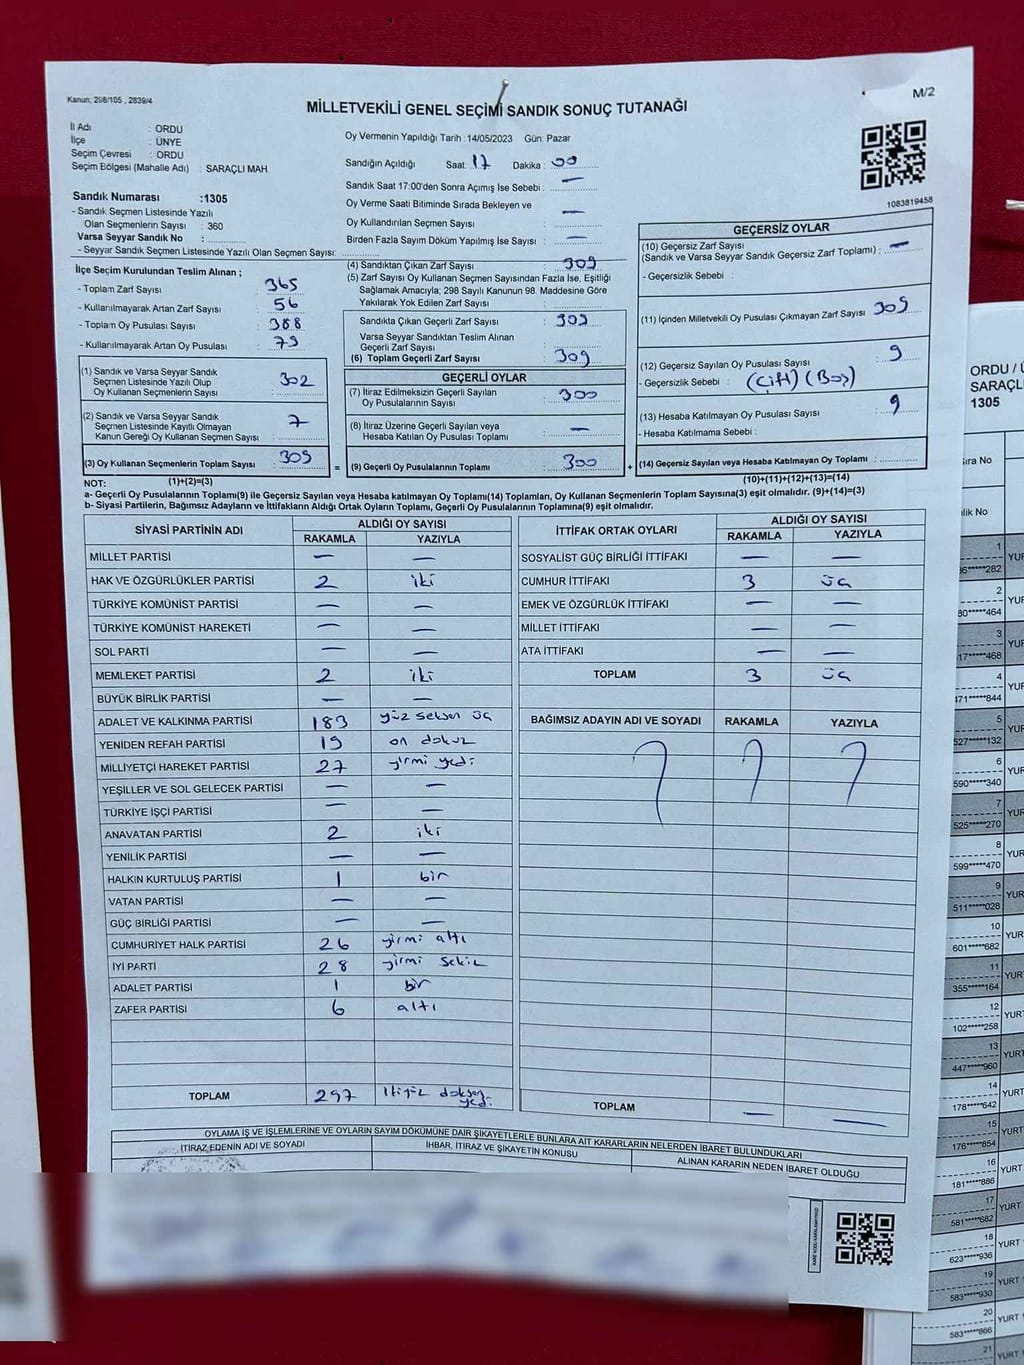 Kanun; 298/105 , 2839/4
M/2
MİLLETVEKİLİ GENEL SEÇİMİ SANDIK SONUÇ TUTANAĞI
İl Adı : ORDU
İlçe : ÜNYE
Seçim Çevresi : ORDU
Seçim Bölgesi (Mahalle Adı) : SARAÇLI MAH.
Sandık Numarası :1305
- Sandık Seçmen Listesinde Yazılı
Olan Seçmenlerin Sayısı : 360
Varsa Seyyar Sandık No :
- Seyyar Sandık Seçmen Listesinde Yazılı Olan Seçmen Sayısı:
İlçe Seçim Kurulundan Teslim Alınan ;
- Toplam Zarf Sayısı : 365
- Kullanılmayarak Artan Zarf Sayısı : 56
- Toplam Oy Pusulası Sayısı : 388
- Kullanılmayarak Artan Oy Pusulası : 79
(1) Sandık ve Varsa Seyyar Sandık
Seçmen Listesinde Yazılı Olup
Oy Kullanan Seçmenlerin Sayısı : 302
(2) Sandık ve Varsa Seyyar Sandık
Seçmen Listesinde Kayıtlı Olmayan
Kanun Gereği Oy Kullanan Seçmen Sayısı : 7
(3) Oy Kullanan Seçmenlerin Toplam Sayısı : 309
Oy Vermenin Yapıldığı Tarih :14/05/2023 Gün: Pazar
Sandığın Açıldığı Saat: 17 Dakika : 00
Sandık Saat 17:00'den Sonra Açımış İse Sebebi : —
Oy Verme Saati Bitiminde Sırada Bekleyen ve
Oy Kullandırılan Seçmen Sayısı : —
Birden Fazla Sayım Döküm Yapılmış İse Sayısı : —
(4) Sandıktan Çıkan Zarf Sayısı : 309
(5) Zarf Sayısı Oy Kullanan Seçmen Sayısından Fazla İse, Eşitliği
Sağlamak Amacıyla; 298 Sayılı Kanunun 98. Maddesine Göre
Yakılarak Yok Edilen Zarf Sayısı :
Sandıkta Çıkan Geçerli Zarf Sayısı : 309
Varsa Seyyar Sandıktan Teslim Alınan
Geçerli Zarf Sayısı :
(6) Toplam Geçerli Zarf Sayısı : 309
GEÇERLİ OYLAR
(7) İtiraz Edilmeksizin Geçerli Sayılan
Oy Pusulalarının Sayısı : 300
(8) İtiraz Üzerine Geçerli Sayılan veya
Hesaba Katılan Oy Pusulası Toplamı : —
= (9) Geçerli Oy Pusulalarının Toplamı : 300 +
1083819458
GEÇERSİZ OYLAR
(10) Geçersiz Zarf Sayısı
(Sandık ve Varsa Seyyar Sandık Geçersiz Zarf Toplamı) : —
- Geçersizlik Sebebi :
(11) İçinden Milletvekili Oy Pusulası Çıkmayan Zarf Sayısı : 309
(12) Geçersiz Sayılan Oy Pusulası Sayısı : 9
- Geçersizlik Sebebi : (Çift) (Boş)
(13) Hesaba Katılmayan Oy Pusulası Sayısı : 9
- Hesaba Katılmama Sebebi :
(14) Geçersiz Sayılan veya Hesaba Katılmayan Oy Toplamı :
NOT: (1)+(2)=(3) (10)+(11)+(12)+(13)=(14)
a- Geçerli Oy Pusulalarının Toplamı(9) ile Geçersiz Sayılan veya Hesaba katılmayan Oy Toplamı(14) Toplamları, Oy Kullanan Seçmenlerin Toplam Sayısına(3) eşit olmalıdır. (9)+(14)=(3)
b- Siyasi Partilerin, Bağımsız Adayların ve İttifakların Aldığı Ortak Oyların Toplamı, Geçerli Oy Pusulalarının Toplamına(9) eşit olmalıdır.
SİYASİ PARTİNİN ADI ALDIĞI OY SAYISI
RAKAMLA YAZIYLA
MİLLET PARTİSİ — —
HAK VE ÖZGÜRLÜKLER PARTİSİ 2 iki
TÜRKİYE KOMÜNİST PARTİSİ — —
TÜRKİYE KOMÜNİST HAREKETİ — —
SOL PARTİ — —
MEMLEKET PARTİSİ 2 iki
BÜYÜK BİRLİK PARTİSİ — —
ADALET VE KALKINMA PARTİSİ 183 yüz seksen üç
YENİDEN REFAH PARTİSİ 19 on dokuz
MİLLİYETÇİ HAREKET PARTİSİ 27 yirmi yedi
YEŞİLLER VE SOL GELECEK PARTİSİ — —
TÜRKİYE İŞÇİ PARTİSİ — —
ANAVATAN PARTİSİ 2 iki
YENİLİK PARTİSİ — —
HALKIN KURTULUŞ PARTİSİ 1 bir
VATAN PARTİSİ — —
GÜÇ BİRLİĞİ PARTİSİ — —
CUMHURİYET HALK PARTİSİ 26 yirmi altı
İYİ PARTİ 28 yirmi sekiz
ADALET PARTİSİ 1 bir
ZAFER PARTİSİ 6 altı
TOPLAM 297 ikiyüz doksan yedi
İTTİFAK ORTAK OYLARI ALDIĞI OY SAYISI
RAKAMLA YAZIYLA
SOSYALİST GÜÇ BİRLİĞİ İTTİFAKI — —
CUMHUR İTTİFAKI 3 üç
EMEK VE ÖZGÜRLÜK İTTİFAKI — —
MİLLET İTTİFAKI — —
ATA İTTİFAKI — —
TOPLAM 3 üç
BAĞIMSIZ ADAYIN ADI VE SOYADI RAKAMLA YAZIYLA
TOPLAM — —
OYLAMA İŞ VE İŞLEMLERİNE VE OYLARIN SAYIM DÖKÜMÜNE DAİR ŞİKAYETLERLE BUNLARA AİT KARARLARIN NELERDEN İBARET BULUNDUKLARI
İTİRAZ EDENİN ADI VE SOYADI İHBAR, İTİRAZ VE ŞİKAYETİN KONUSU ALINAN KARARIN NEDEN İBARET OLDUĞU
ORDU /
SARAÇLI
1305
Sıra No
1
*****282 YUR
2
80*****464 YUR
3
17*****468 YUR
4
471*****844 YUR
5
527*****132 YUR
6
590*****340 YUR
7
525*****270 YUR
8
599*****470 YUR
9
511*****028 YUR
10
601*****682 YUR
11
355*****164 YUR
12
102*****258 YUR
13
447*****960 YURT
14
178*****642 YURT
15
176*****854 YURT
16
181*****886 YURT
17
581*****682 YURT
18
623*****936 YURT
19
583*****930 YURT
20
583*****866 YURT
21 YURT